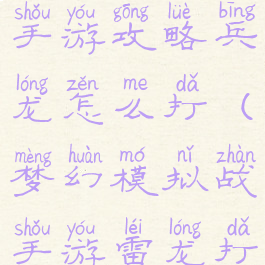 shǒu yóu gōng lüè bīng
手游攻略兵
lóng zěn me dǎ
龙怎么打（
mèng huàn mó nǐ zhàn
梦幻模拟战
shǒu yóu léi lóng dǎ
手游雷龙打